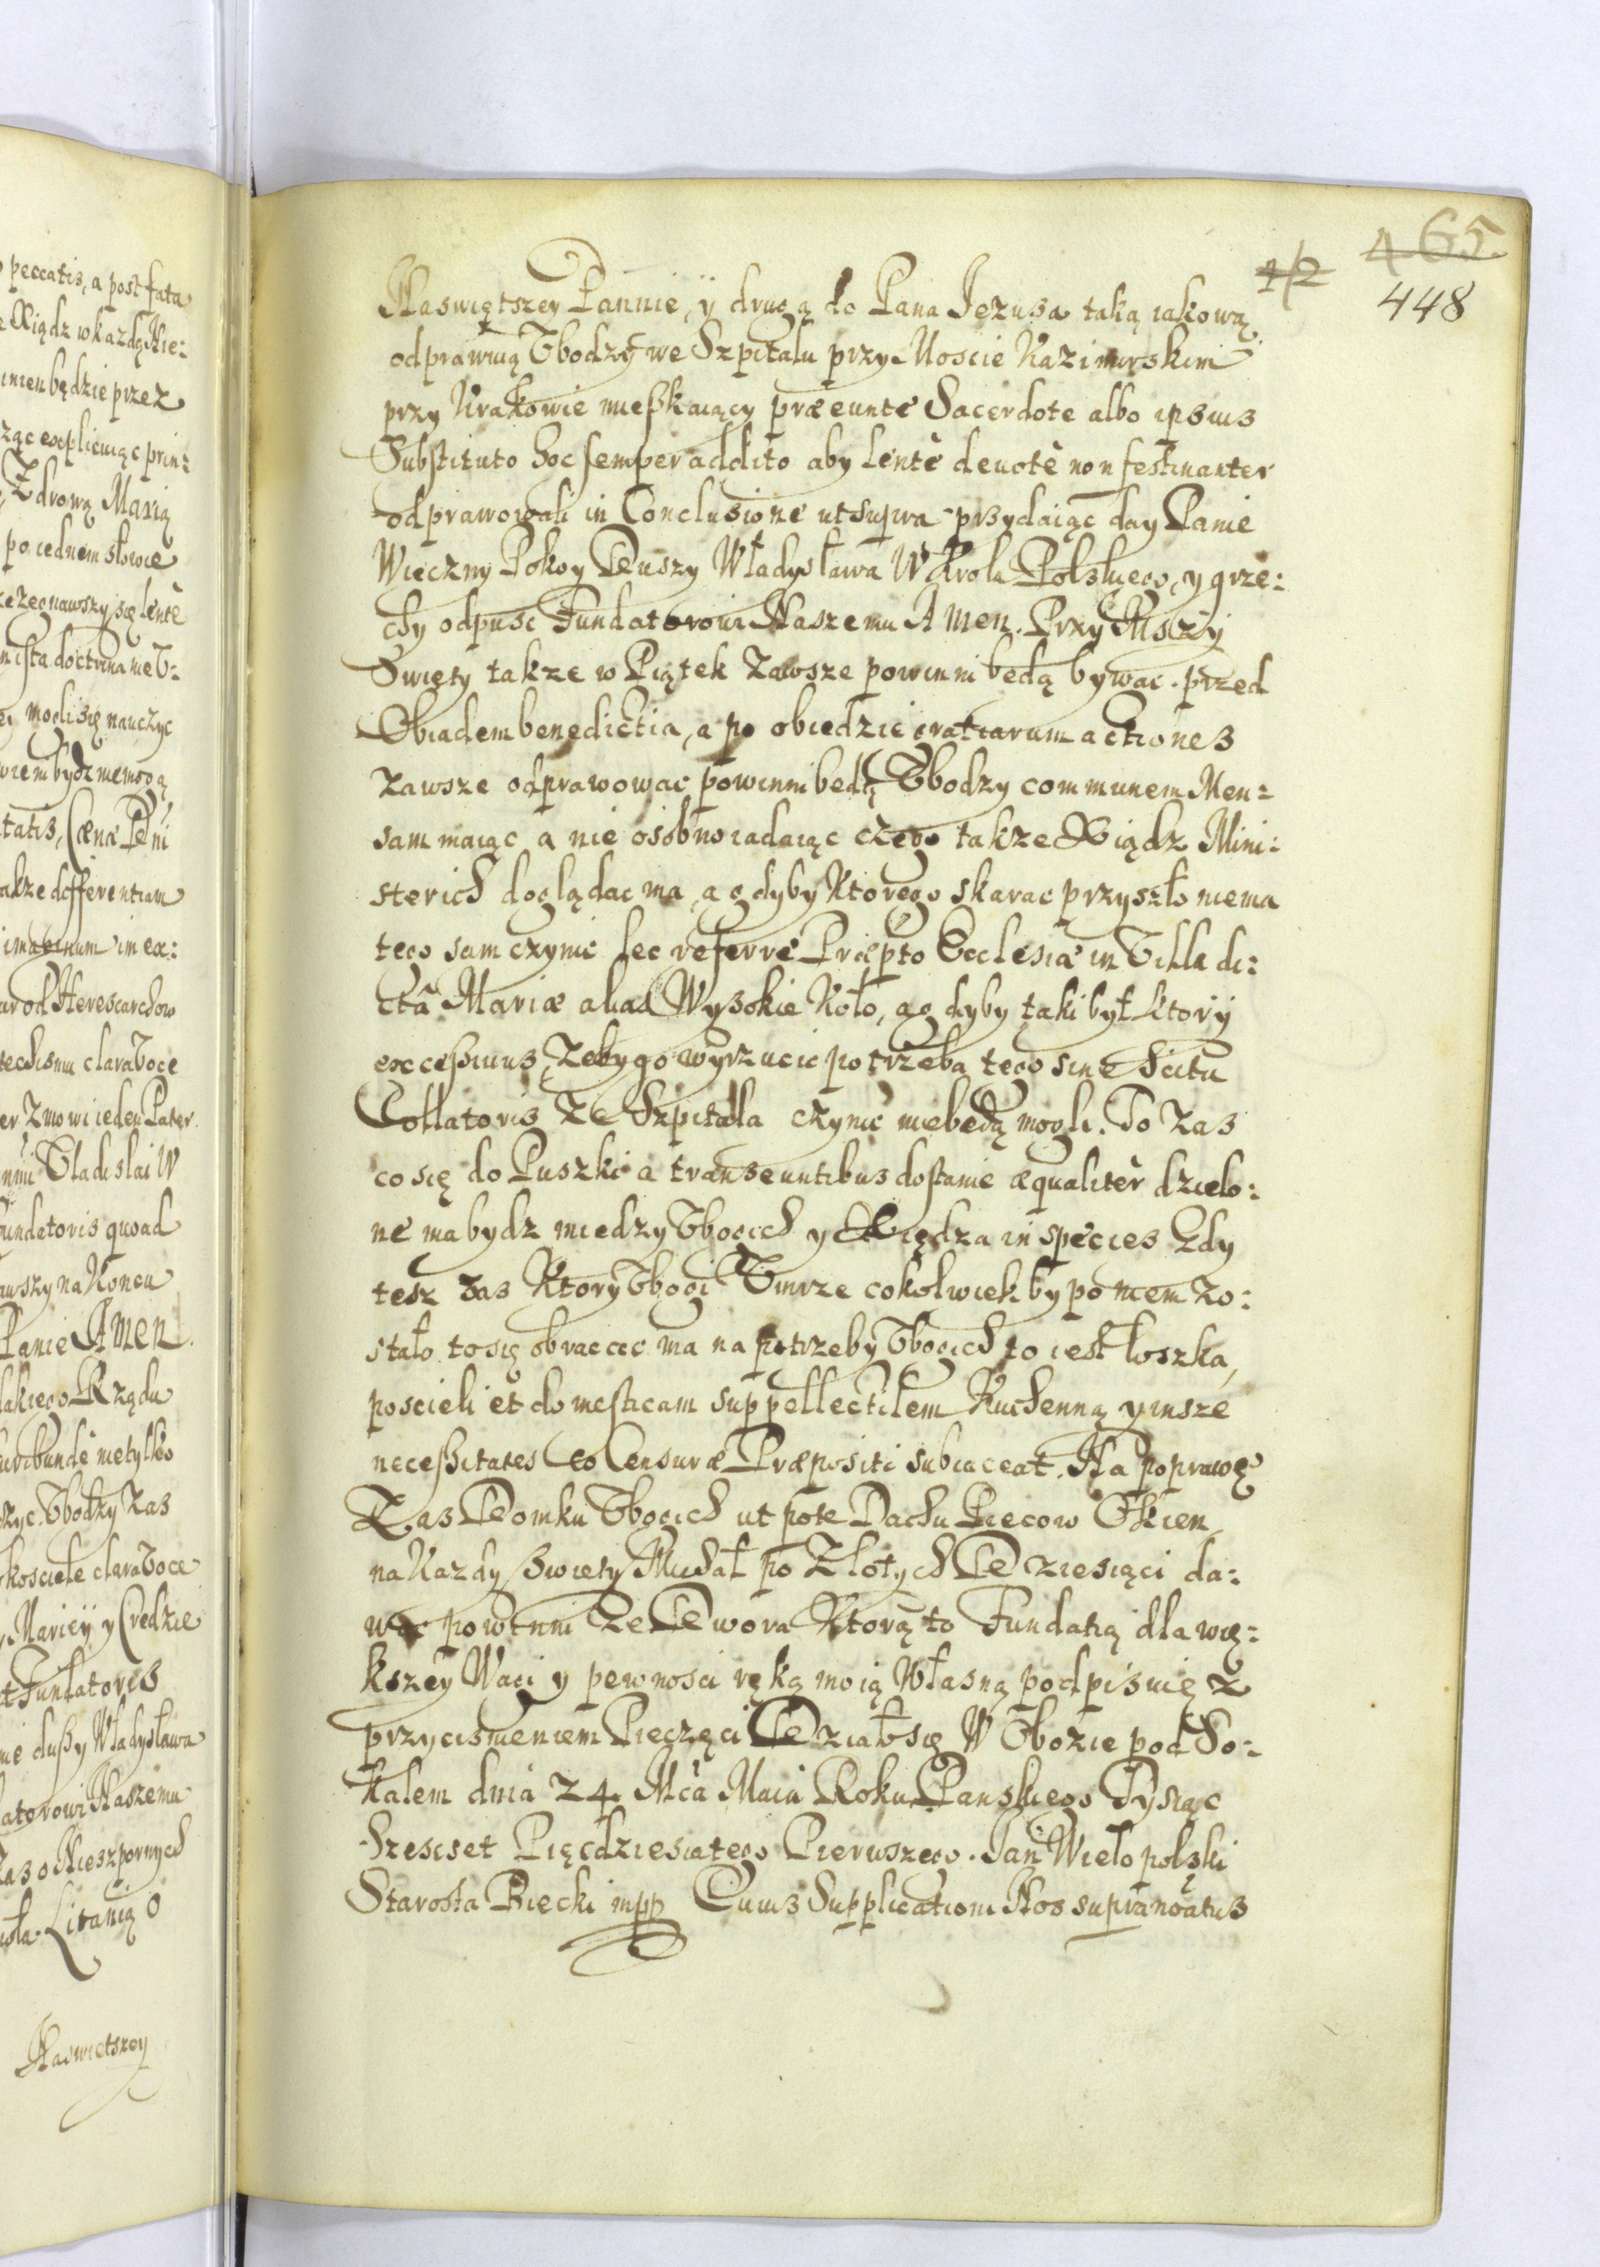 peccatis, a post fata
Xiądz w kazdą Nie:
inien będzie przez
ząc explicuiąc prin:
Zdrową Marią
po iednem słowie
zezegnawszy się lentè
ista doctrina nie V:
mogli się nauczyc
wiem bydz nie mogą
tatis, Cæna Pẽni
akze differentiam
imaginum in ex:
ar od Heresiarchow
techismu clara Voce
er Zmowi ieden Pater
nnii Vladislai IV
undatoris quoad
awszy na Koncu
Panie AMEN.
lakiego Rządu
uribundè nietylko
czyc. Vbodzy zas
kosciele clara Voce
Mariey y Credzie
t Fundatoris
nie duszy Władysława
atorowi Naszemu
Zas o Nieszpornych
oła. Litanią o
Naswietszey
65
1/2
448
Naswiętszey Pannie, ÿ drugą do Pana Jezusa taką iakową
odprawuią Vbodzy we Szpitalu przy Moscie Kazimirskim
przy Krakowie mieszkaiący præeunte Sacerdote albo ipsius
Substituto hoc semper addito aby lentè deuotè non festinanter
odprawowali in Conclusione ut supra przydaiąc day Panie
Wieczny Pokoy Duszy Władysława IV Krola Polskiego, y grze:
chy odpusc Fundatorowi Naszemu AMEN. Przy Mszy
Swięty takze w Piątek zawsze powinni będą bywac. przed
Obiadem benedictia, a po obiedzie gratiarum actiones
zawsze odprawowac powinni będą Vbodzy communem Men:
sam maiąc a nie osobno iadaiąc czego takze Xiądz Mini:
sterich doglądac ma, a gdyby Ktorego skarac przyszło niema
tego sam czynic lec referre Præpto Ecclesiæ in Villa di:
cta Mariæ alias Wysokie Koło, a gdyby taki był Ktory
excessiuus, Zeby go wyrzucic potrzeba tego sine Scitu
Collatoris ze Szpitala czynic niebędą mogli. To zas
co się do Puszki a transeuntibus dostanie æqualiter dzielo:
ne ma bydz miedzy Vbogich y Xiędza in species Gdy
tesz zas Ktory Vbogi Vmrze cokolwiek by po niem zo:
stało to się obracac ma na potrzeby Vbogich to iest łoszka,
poscieli et domesticam suppellectilem Kuchenną y insze
necessitates eo Censuræ Præpositi subiaceat. Na poprawę
Zas Domku Vbogich ut pote Dachu Piecow Okien
na Kazdy Swiety Michał po Złotych Dziesiąci da:
wac powinni ze Dwora Ktorą to Fundatią dla wię:
kszey Wagi y pewnosci ręką moią Własną podpisuię z
przycisnieniem Pieczęci Działo się W Obozie pod So:
kalem dnia 24. Mca Maia Roku Panskiego Tysiąc
Szescset Pięcdziesiątego Pierwszego. Jan Wielopolski
Starosta Biecki mpp Cuius Supplicationi Nos supranoatus